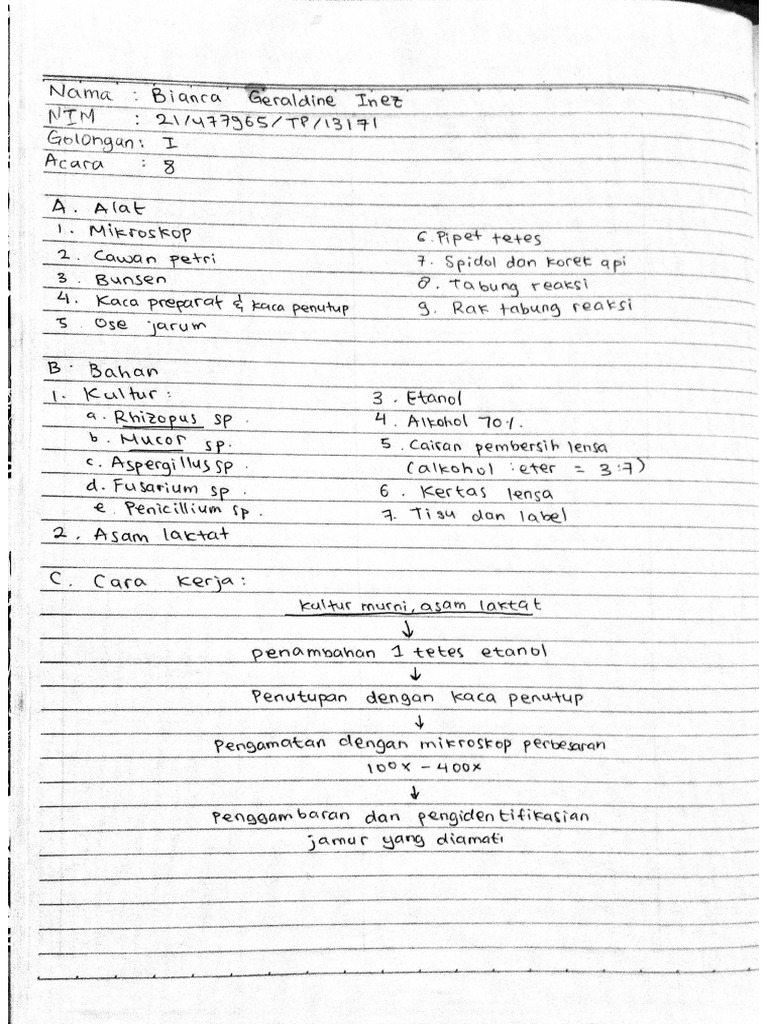 Nama : Bianca Geraldine Inez
NIM : 21/477965/TP/13171
Golongan : I
Acara : 8
A. Alat
1. Mikroskop
2. Cawan petri
3. Bunsen
4. Kaca preparat & kaca penutup
5. Ose jarum
6. Pipet tetes
7. Spidol dan korek api
8. Tabung reaksi
9. Rak tabung reaksi
B. Bahan
1. Kultur :
a. Rhizopus sp.
b. Mucor sp.
c. Aspergillus sp
d. Fusarium sp.
e. Penicillium sp.
2. Asam laktat
3. Etanol
4. Alkohol 70%.
5. Cairan pembersih lensa
(alkohol : eter = 3:7)
6. Kertas lensa
7. Tisu dan label
C. Cara Kerja :
kultur murni, asam laktat
↓
penambahan 1 tetes etanol
↓
Penutupan dengan kaca penutup
↓
Pengamatan dengan mikroskop perbesaran
100x - 400x
↓
Penggambaran dan pengidentifikasian
jamur yang diamati